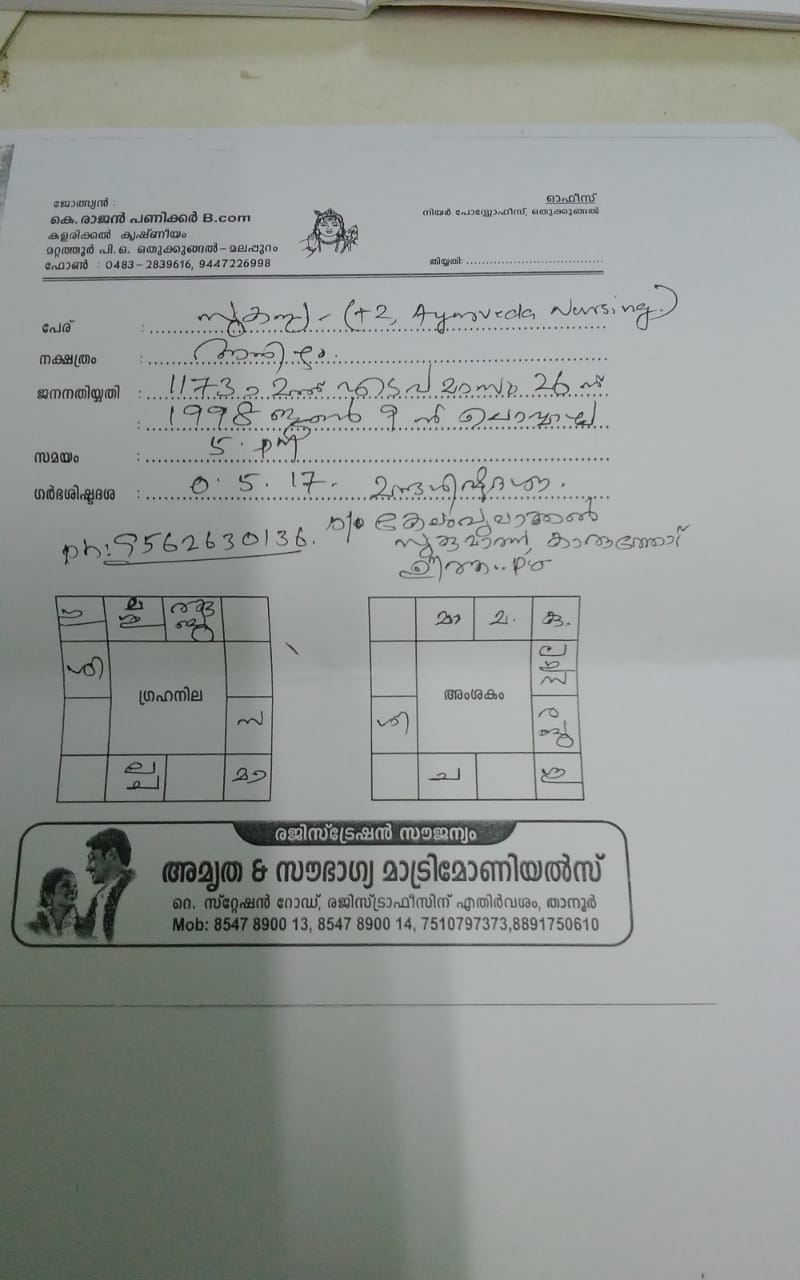 ജോത്സ്യൻ :
കെ. രാജൻ പണിക്കർ B.com
കളരിക്കൽ കൃഷ്ണീയം
മറ്റത്തൂർ പി.ഒ. ഒതുക്കുങ്ങൽ – മലപ്പുറം
ഫോൺ : 0483 – 2839616, 9447226998
ഓഫീസ്
നിയർ പോസ്റ്റോഫീസ്, ഒതുക്കുങ്ങൽ
തിയ്യതി:
പേര് : സുകന്യ - (+2, Ayurveda Nursing.)
നക്ഷത്രം :
ജനനതിയ്യതി : 1173 ാ മത് എടവ മാസം 26 ന്
: 1998 ജൂൺ 9 ന് ചൊവ്വാഴ്ച
സമയം : 5. PM
ഗർഭശിഷ്ടദശ : 0. 5. 17.
ph: 9562630136.
P.O
ശി
ഗ്രഹനില
സ
ല
ച
മാ
മാ
കു
ശി
അംശകം
ല
സ
ര
ച
റജിസ്ട്രേഷൻ സൗജന്യം
അമൃത & സൗഭാഗ്യ മാട്രിമോണിയൽസ്
റെ. സ്റ്റേഷൻ റോഡ്, രജിസ്ട്രാഫീസിന് എതിർവശം, താനൂർ
Mob: 8547 8900 13, 8547 8900 14, 7510797373,8891750610